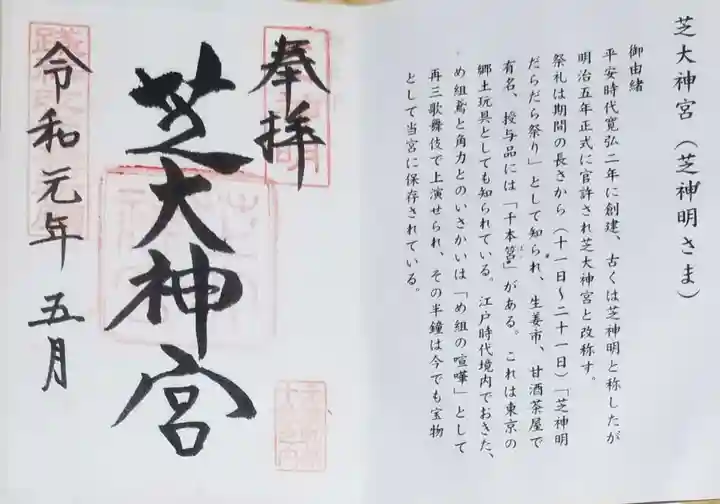 芝大神宮(芝神明さま)
御由緒
平安時代寛弘二年に創建、古くは芝神明と称したが
明治五年正式に官許され芝大神宮と改称す。
祭礼は期間の長さから(十一日~二十一日)「芝神明
だらだら祭り」として知られ、生姜市、甘酒茶屋で
有名、授与品には「千本筥」がある。これは東京の
郷土玩具としても知られている。江戸時代境内でおきた、
め組鳶と角力とのいさかいは「め組の喧嘩」として
再三歌舞伎で上演せられ、その半鐘は今でも宝物
として当宮に保存されている。
奉拝
芝大神宮
令和元年 五月